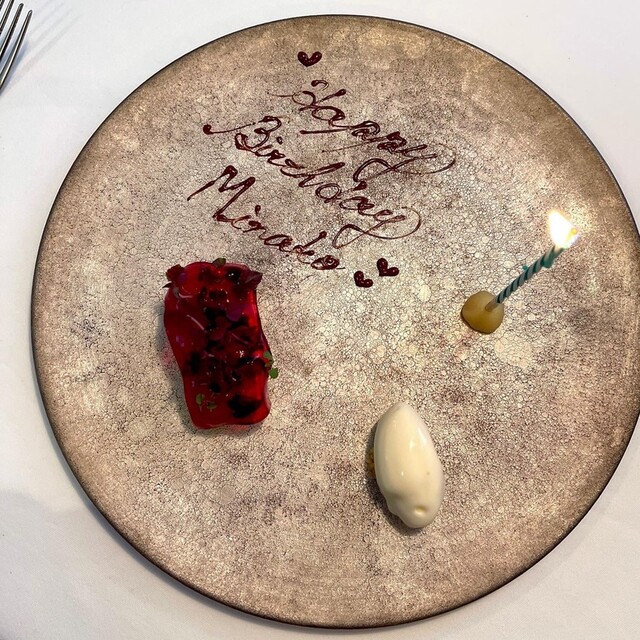 Happy
Birthday
Minako